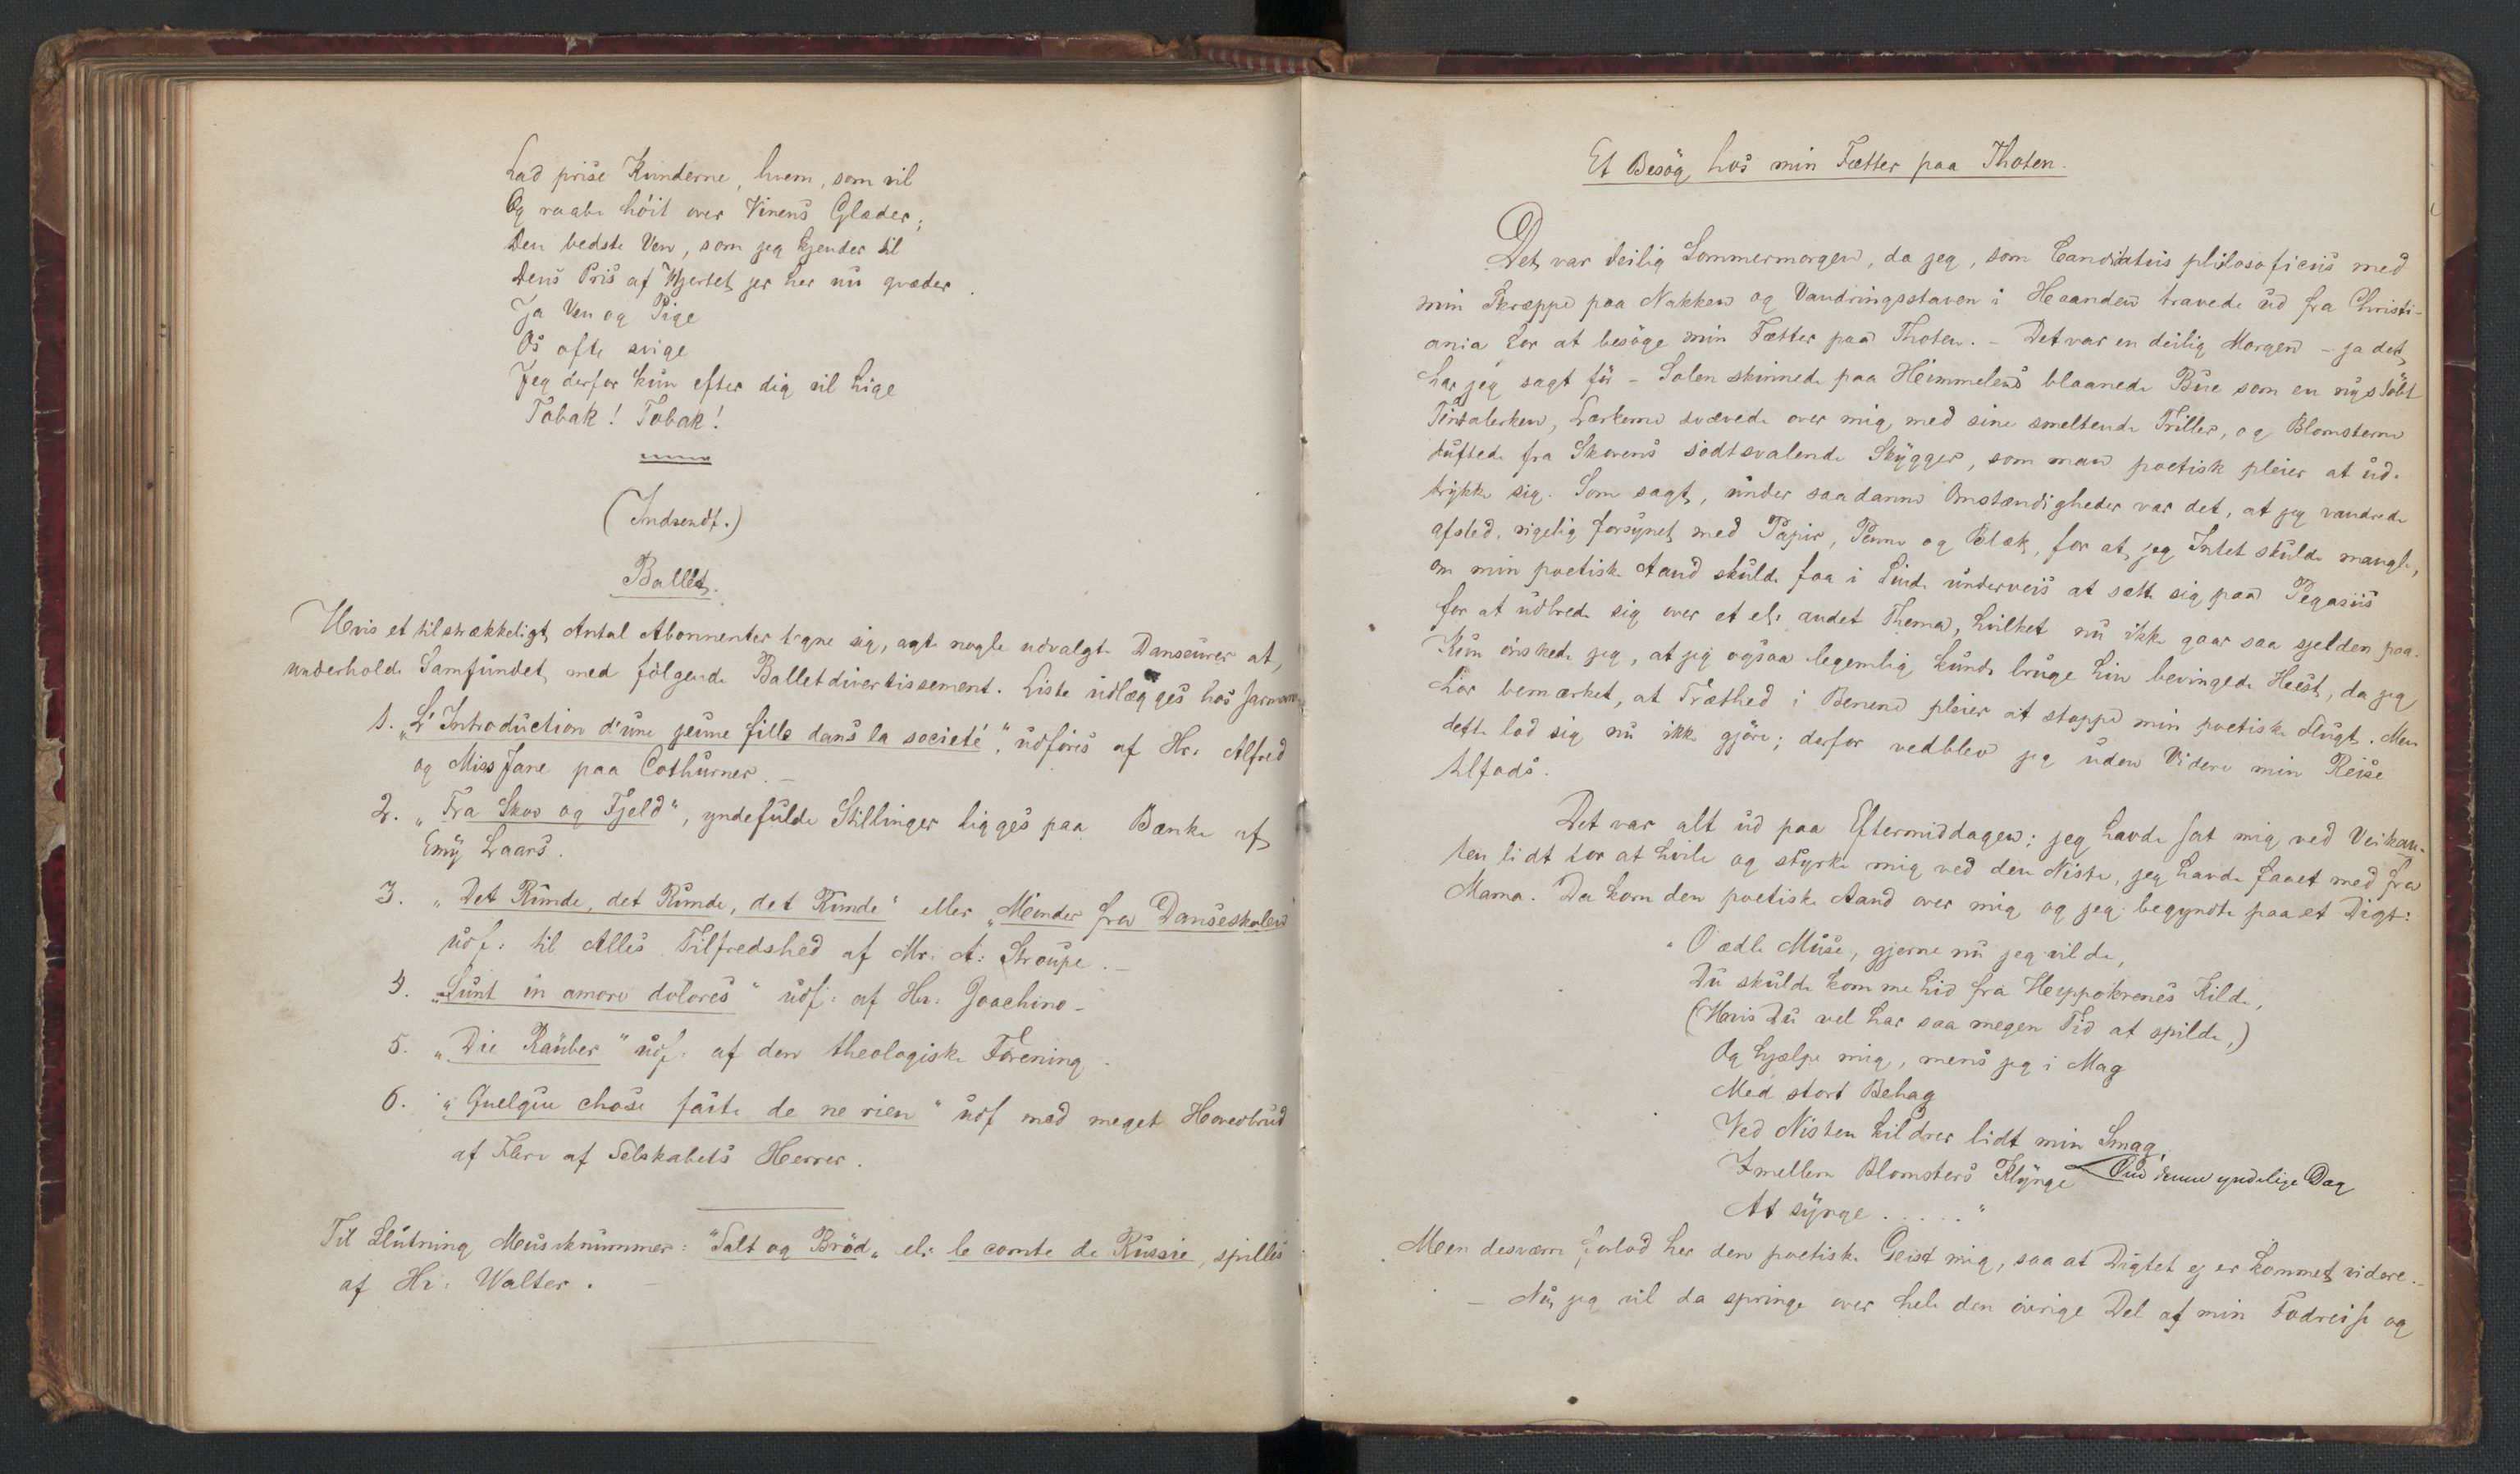 Lad prise Kvinderne, hvem, som vil
Og raabe höit over Vinens Glæder;
Den bedste Ven, som jeg kjender til
Dens Pris af Hjertet jeg her nu qvæder.
Ja Ven og Pige
Os ofte svige
Jeg derfor kun efter dig vil hige
Tobak! Tobak!
(Indsendt.)
Ballet.
Hvis et tilstrækkeligt Antal Abonnenter tegne sig, agte nogle udvalgte Danseurer at
underholde Samfundet med fölgende Balletdivertissement. Liste udlægges hos
1. „L'Introduction d'une jeune fille dans la societé", udföres af Hr. Alfred
og Miss Jane paa Cothurner. —
2. „Fra Skov og Fjeld", yndefulde Stillinger ligges paa Bænke af
Emy Laars.
3. „Det Runde, det Runde, det Runde" eller „Minder fra Danseskolen"
udf: til Alles Tilfredshed af Mr. A: Stroupe. —
4. „Sunt in amore dolores" udf: af Hr: Joachino —
5. „Die Räuber" udf: af den theologiske Forening.
6. „Quelque chose faite de ne rien" udf med meget Hovedbrud
af Flere af Selskabets Herrer.
Til Slutning Musiknummer: "Salt og Bröd„ el: le comte de Russie, spilles
af Hr: Walter. —
Et Besög hos min Fætter paa Thoten.
Det var deilig Sommermorgen, da jeg, som Candidatus philosoficus med
min Skræppe paa Nakken og Vandringsstaven i Haanden travede ud fra Christi-
ania for at besöge min Fætter paa Thoten. — Det var en deilig Morgen — ja det
har jeg sagt för — Solen skinnede paa Himmelens blaanede Bue som en nystöbt
Tintalerken, Lærkerne svævede over mig med sine smeltende Triller, og Blomsterne
duftede fra Skovens södtsvalende Skygger, som man poetisk pleier at ud-
trykke sig. Som sagt, under saadanne Omstændigheder var det, at jeg vandrede
afsted, rigelig forsynet med Papir, Penne og Blæk, for at jeg Intet skulde mangle,
om min poetiske Aand skulde faa i Sinde underveis at sætte sig paa Pegasus
for at udbrede sig over et el: andet Thema, hvilket nu ikke gaar saa sjelden paa.
Kun önskede jeg, at jeg ogsaa legemlig kunde bruge hin bevingede Hest, da jeg
har bemærket, at Træthed i Benene pleier at stoppe min poetiske Flugt. Men
dette lod sig nu ikke gjöre; derfor vedblev jeg uden Videre min Reise
tilfods.
Det var alt ud paa Eftermiddagen; jeg havde sat mig ved Veikan-
ten lidt for at hvile og styrke mig ved den Niste, jeg havde faaet med fra
Mama. Da kom den poetiske Aand over mig og jeg begyndte paa et Digt:
„O ædle Muse, gjerne nu jeg vilde,
Du skulde komme hid fra Hippokrenes Kilde,
(Hvis Du vel har saa megen Tid at spilde,)
Og hjælpe mig, mens jeg i Mag
Med stort Behag
Ved Nisten kildrer lidt min Smag,
Imellem Blomsters Klynge
Om denne yndelige Dag
At synge ....."
Men desværre forlod her den poetiske Geist mig, saa at Digtet ej er kommet videre. —
— Nu jeg vil da springe over hele den övrige Del af min Fodreise og